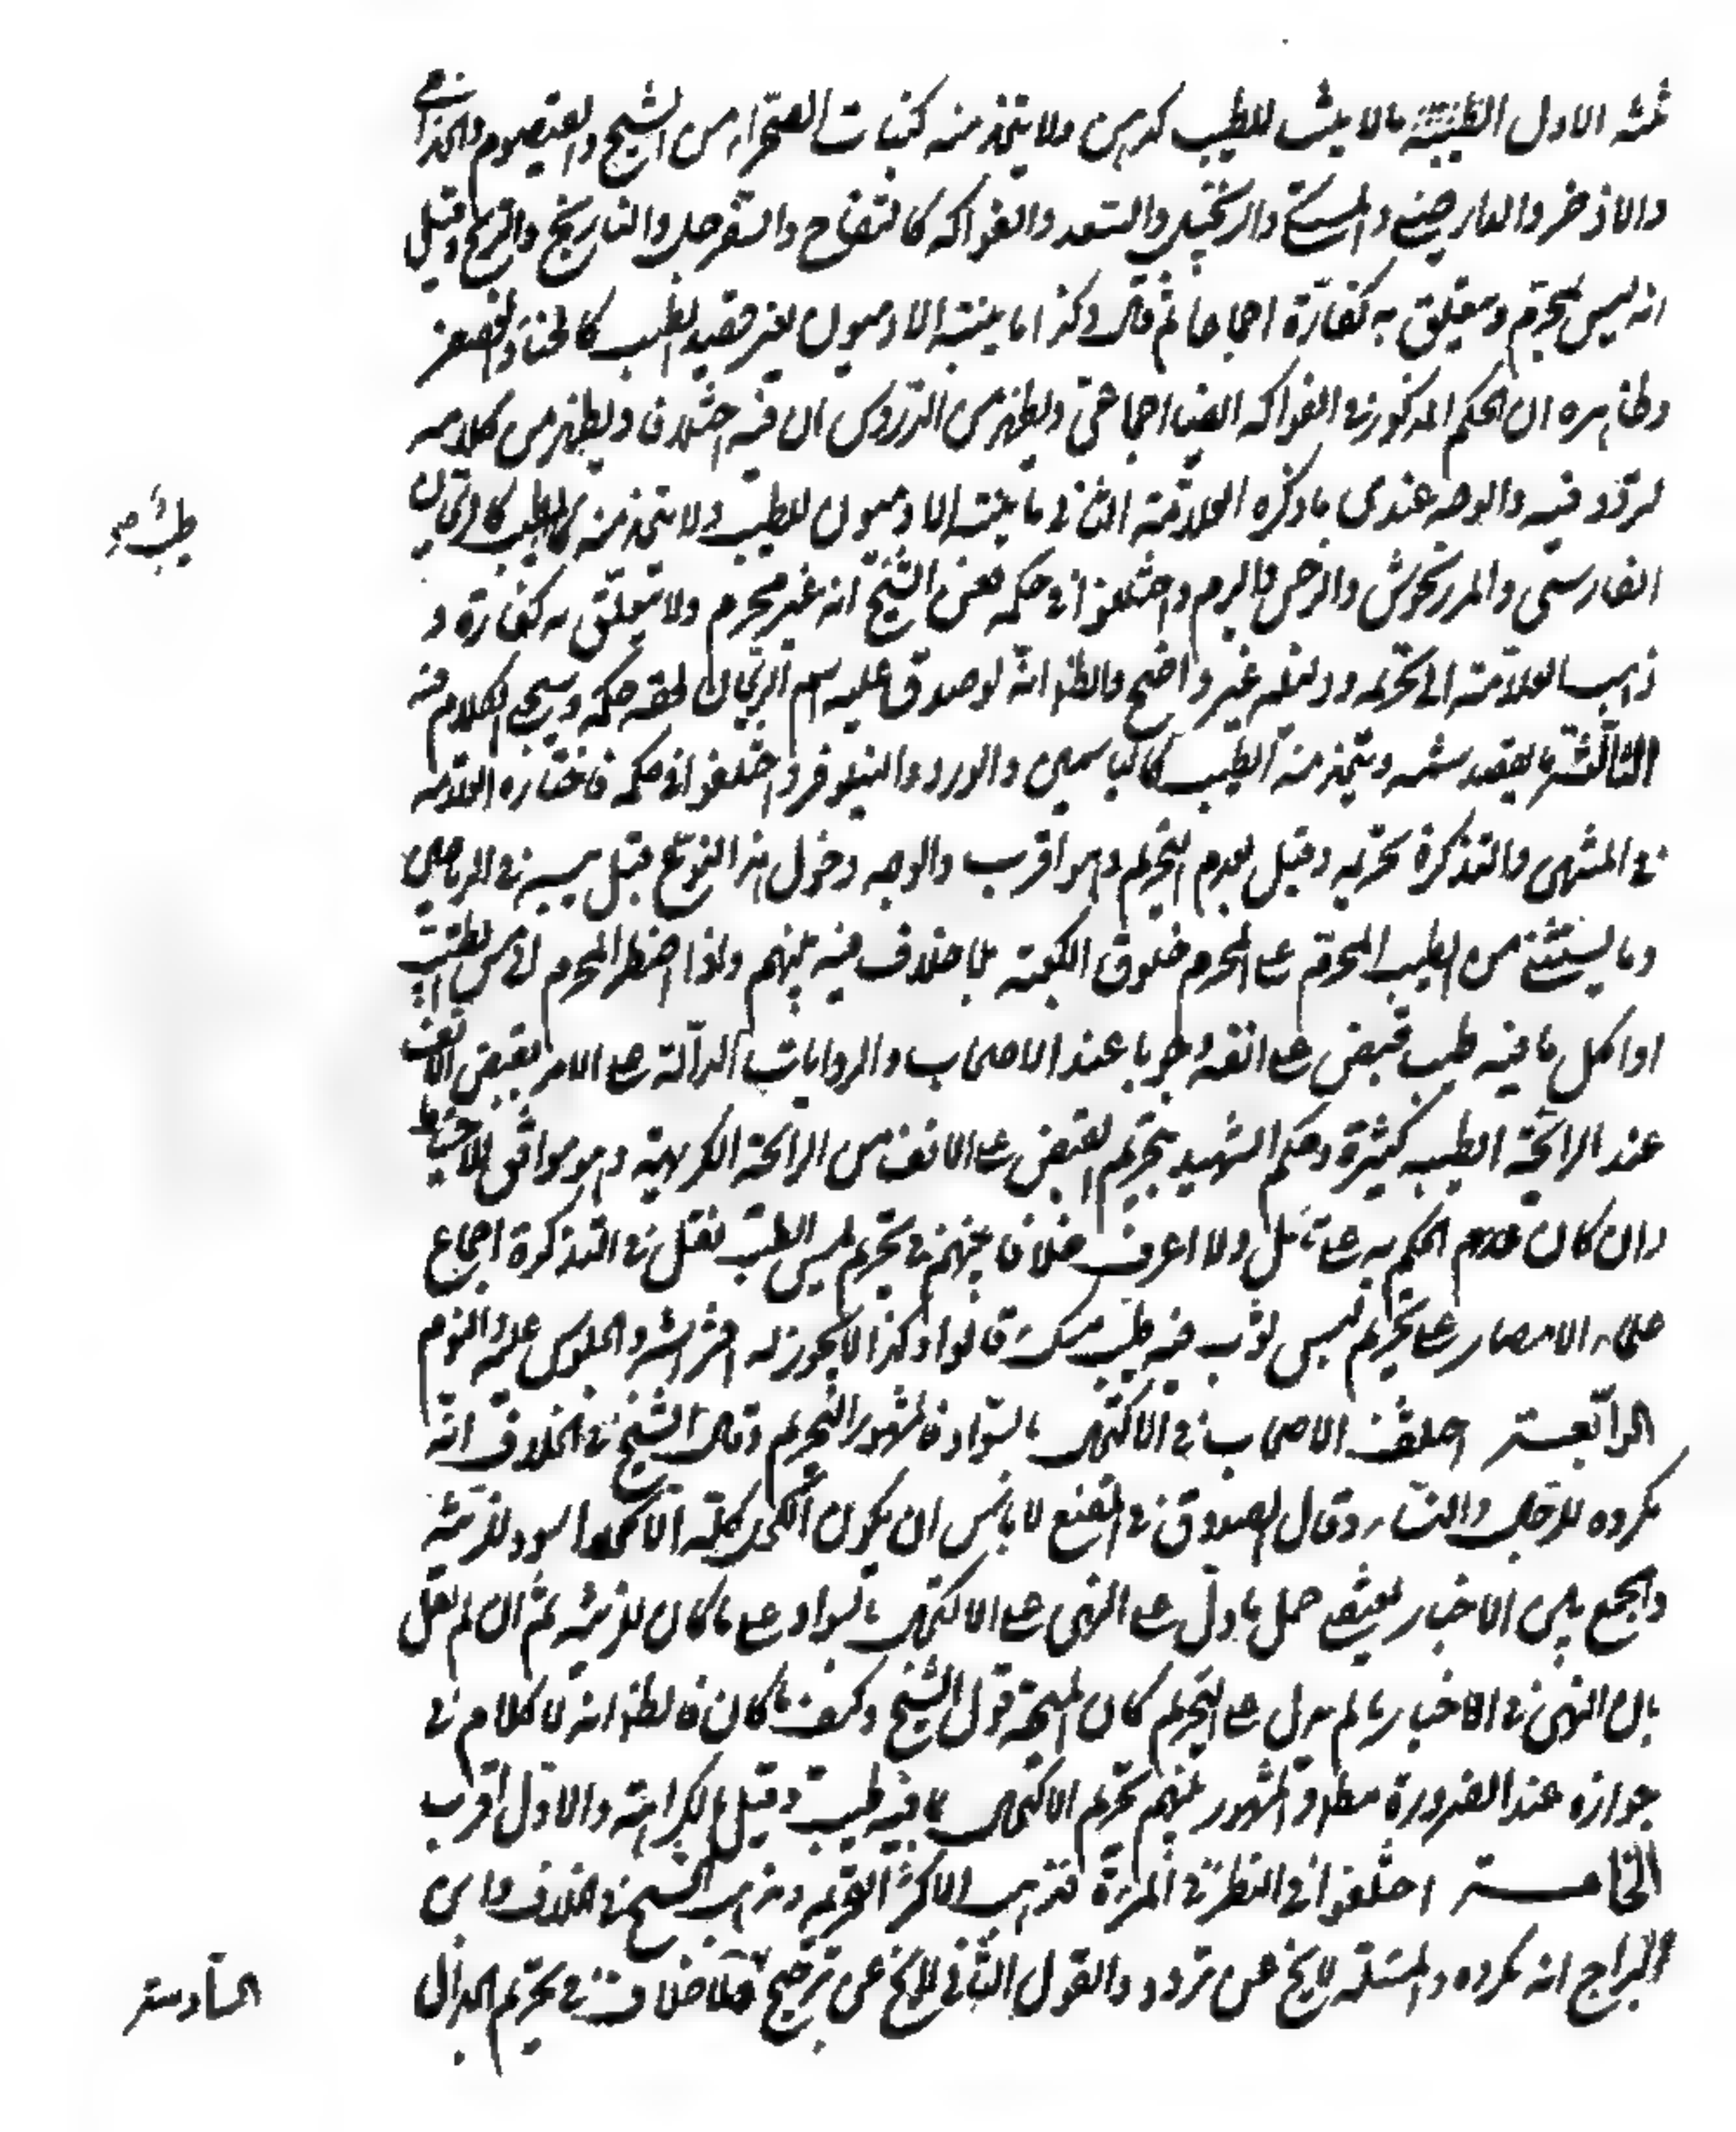 ثلثة الاول ما لا ينبت للطيب ولا يتخذ منه كنبات الصحراء من الشيح والقيصوم والخزامى
والاذخر والدارصيني والمصطكي والزنجبيل والسعد والفواكه كالتفاح والسفرجل والنارنج والاترج وقيل
انه ليس بمحرم ولا يتعلق به كفارة اجماعا ثم قال وكذا ما ينبته الادميون لغير قصد الطيب كالحناء والعصفر
وظاهره ان الحكم المذكور في الفواكه ايضا اجماعي ويظهر من الدروس ان فيه اختلافا ويظهر من كلامه
تردد فيه والوجه عندي ما ذكره العلامة الثاني ما ينبته الادميون للطيب ولا يتخذ منه الطيب كالريحان
الفارسي والمرزنجوش والنرجس والبرم واختلفوا في حكمه فعن الشيخ انه غير محرم ولا يتعلق به كفارة و
ذهب العلامة الى تحريمه ودليله غير واضح والظاهر انه لو صدق عليه اسم الريحان لحقه حكمه وسيجيء الكلام فيه
الثالث ما يقصد شمه ويتخذ منه الطيب كالياسمين والورد والنيلوفر واختلفوا في حكمه فاختاره العلامة
في المنتهى والتذكرة تحريمه وقيل بعدم التحريم وهو اقرب والوجه دخول هذا النوع قبل يبسه في الرياحين
وما يستثنى من الطيب المحرم على المحرم خلوق الكعبة بلا خلاف فيه بينهم واذا اضطر المحرم الى مس الطيب
او اكل ما فيه طيب قبض على انفه وجوبا عند الاصحاب والروايات الدالة على الامر بقبض الانف
عند الرائحة الطيبة كثيرة وحكم الشهيد بتحريم القبض على الانف من الرائحة الكريهة وهو موافق للاحتياط
وان كان الحكم به على تأمل ولا اعرف خلافا بينهم في تحريم لبس الطيب نقل في التذكرة اجماع
علماء الامصار على تحريم لبس ثوب فيه طيب قالوا وكذا لا يجوز له افتراشه والجلوس عليه والنوم
الرابعة اختلف الاصحاب في الاكتحال بالسواد فالمشهور التحريم وقال الشيخ في الخلاف انه
مكروه للرجال والنساء وقال الصدوق في المقنع لا بأس ان يكون الكحل كله الا كحلا اسود للزينة
والجمع بين الاخبار يقتضي حمل ما دل على النهي على الاكتحال بالسواد على ما كان للزينة ثم ان لم نقل
بان النهي في الاخبار مما لم يدل على التحريم كان المتجه قول الشيخ وكيف ما كان فالظاهر انه لا كلام في
جوازه عند الضرورة مطلقا والمشهور بينهم تحريم الاكتحال بما فيه طيب وقيل بالكراهة والاول اقرب
الخامسة اختلفوا في النظر في المرآة فذهب الاكثر الى التحريم وذهب الشيخ في الخلاف وابن
البراج انه مكروه والمسئلة لا يخ عن تردد والقول الثاني لا يخ عن ترجيح فلا خلاف في تحريم الجدال
السادسة